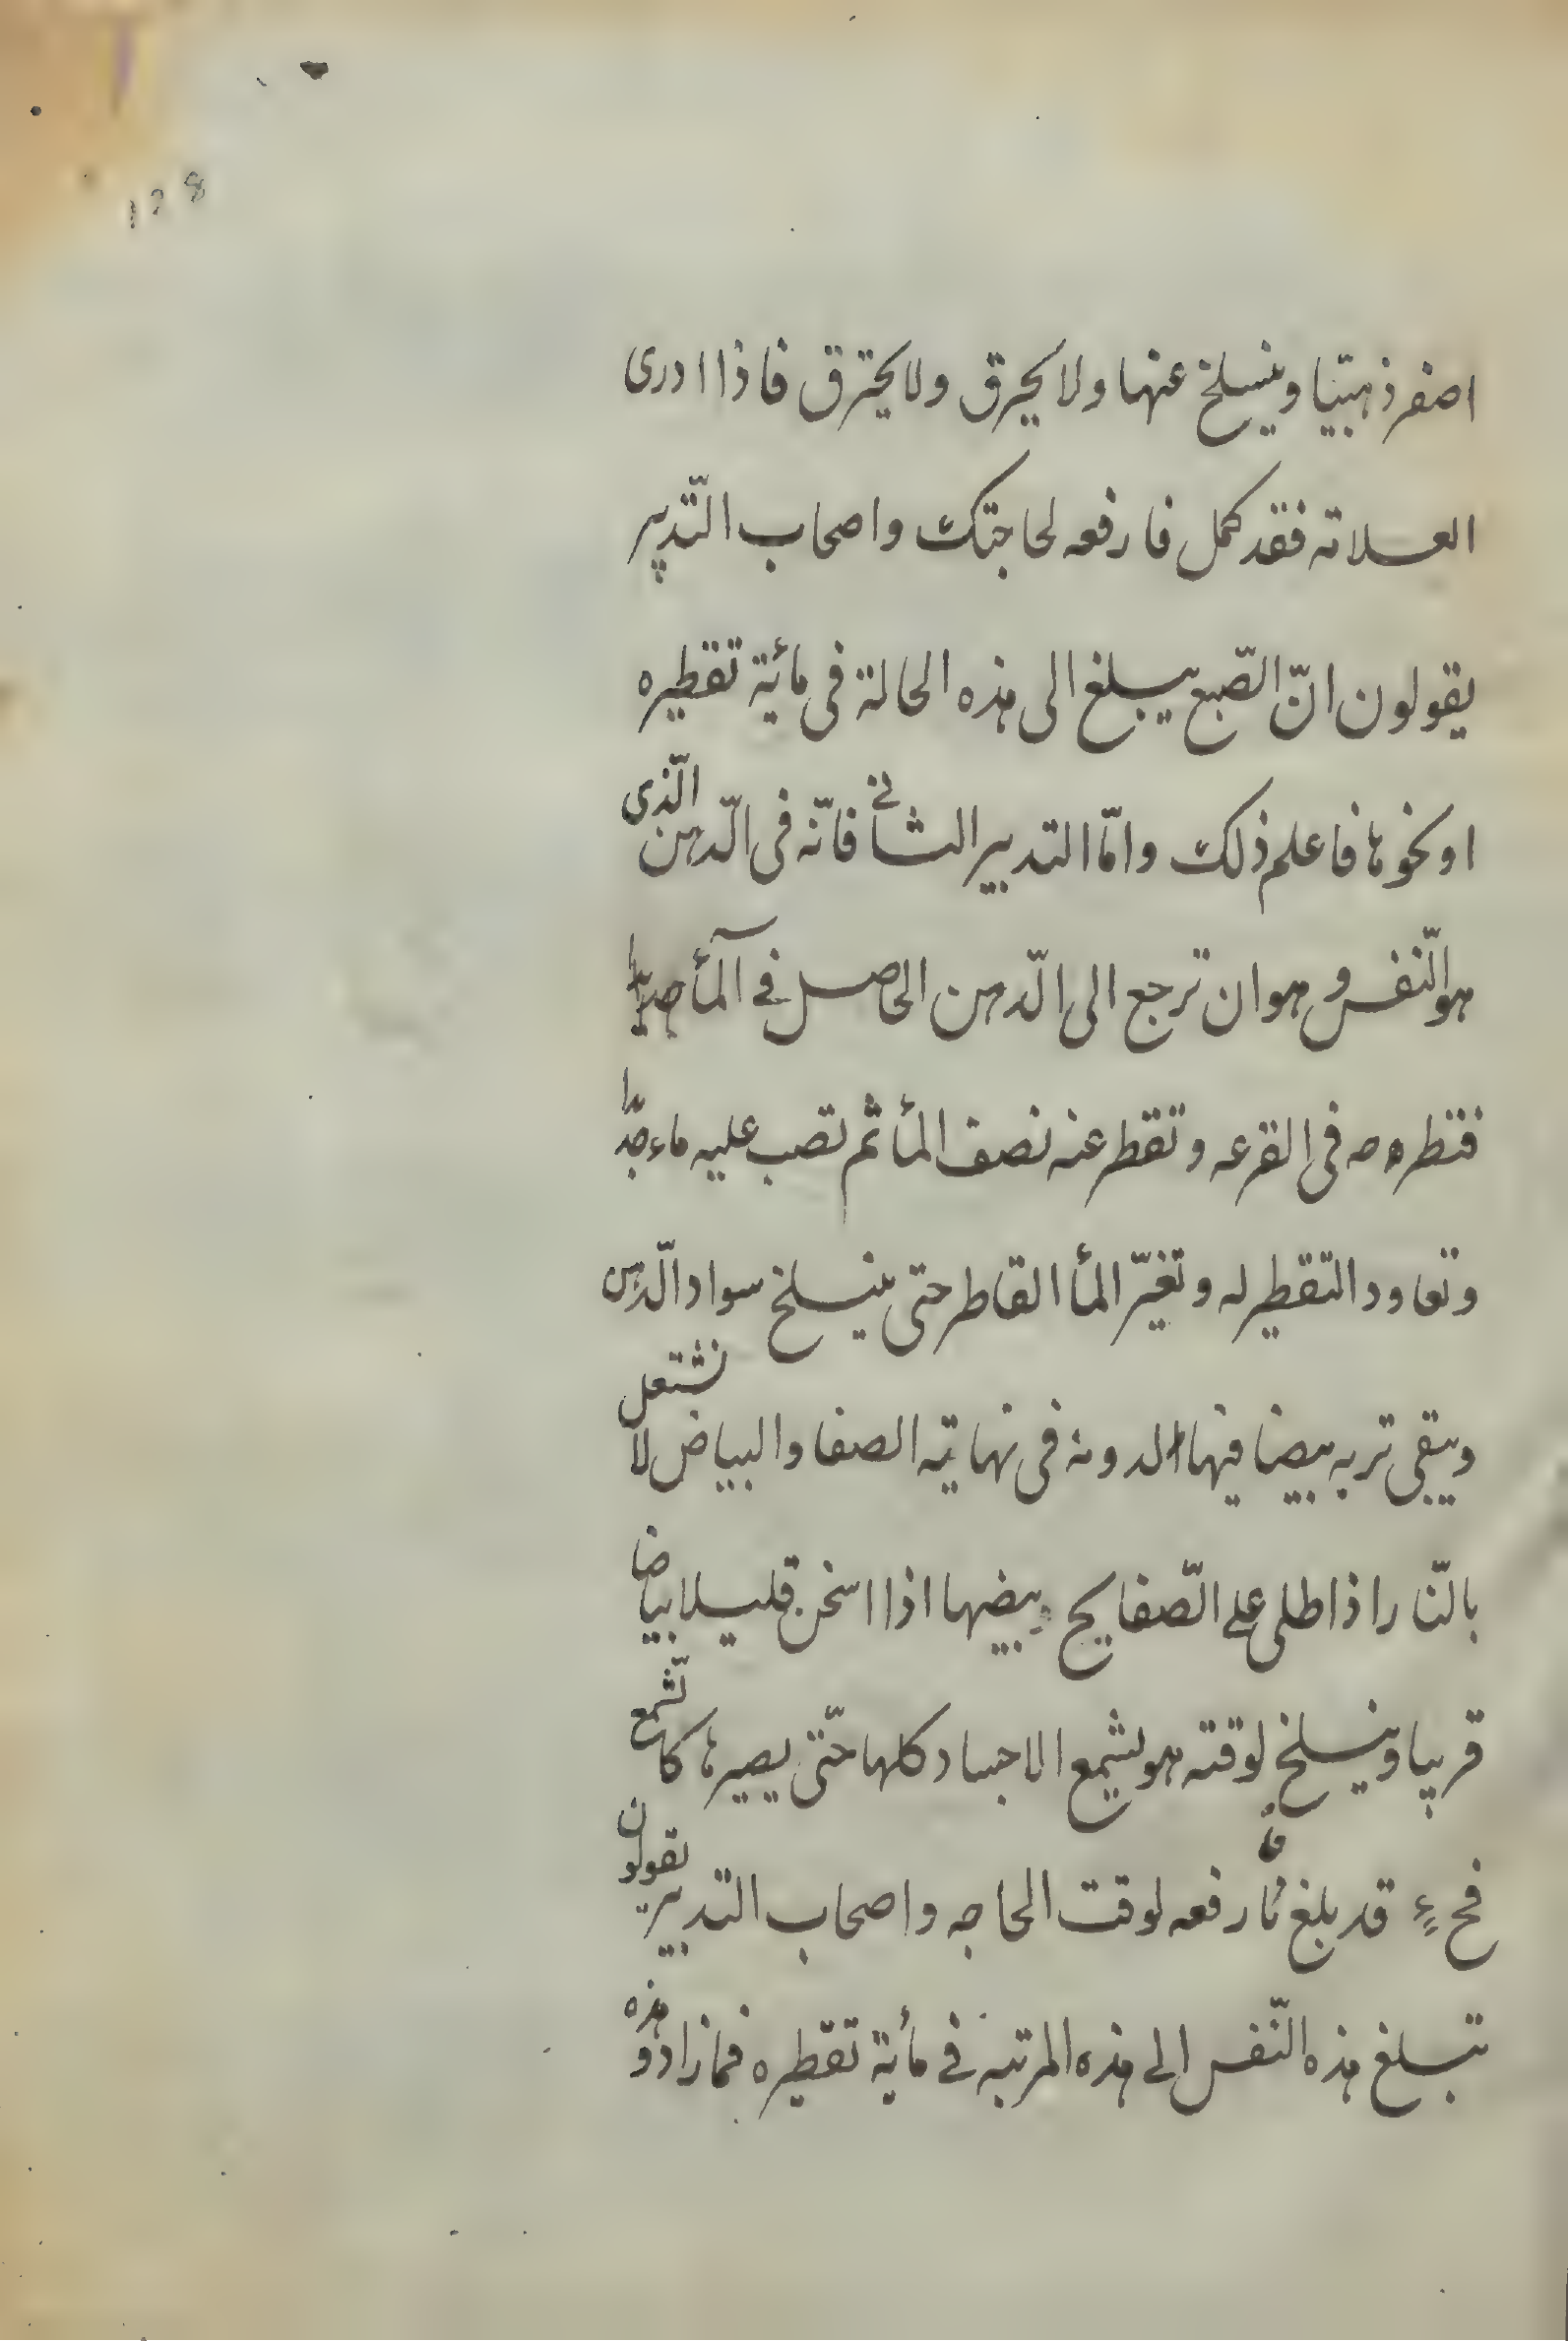 128
اصفر ذهبيّا وينسلخ عنها ولا يحرق ولا يحترق فاذا ادرى
العلاته فقد كمل فارفعه لحاجتك واصحاب التّدبير
يقولون انّ الصّبع يبلغ الى هذه الحالة فى مائية تقطيره
او نحوها فاعلم ذلك وامّا التدبير الثانى فانّه فى الدّهن الّذى
هو النّفس وهو ان ترجع الى الدّهن الحاصل فى المآء
فى القرعه وتقطر عنه نصف المأ ثم تصب عليه ماء جدّا
وتعاود التقطير له وتغيّر المأ القاطر حتى ينسلخ سواد الدّهن
ويبقى تربه بيضا فيها الدونه فى نهاتيه الصفا والبياض لا تشتعل
بالنّار اذا طلى على الصّفايح يبيضها اذا اسخن قليلا بياضا
قريبا وينسلخ لوقته هو يشمع الاجساد كلها حتّى يصيرها كالشّمع
فح قد بلغ فارفعه لوقت الحاجه واصحاب التدبير يقولون
تبلغ هذه النّفس الى هذه المرتبه فى مأية تقطيره فما زاد و هذه